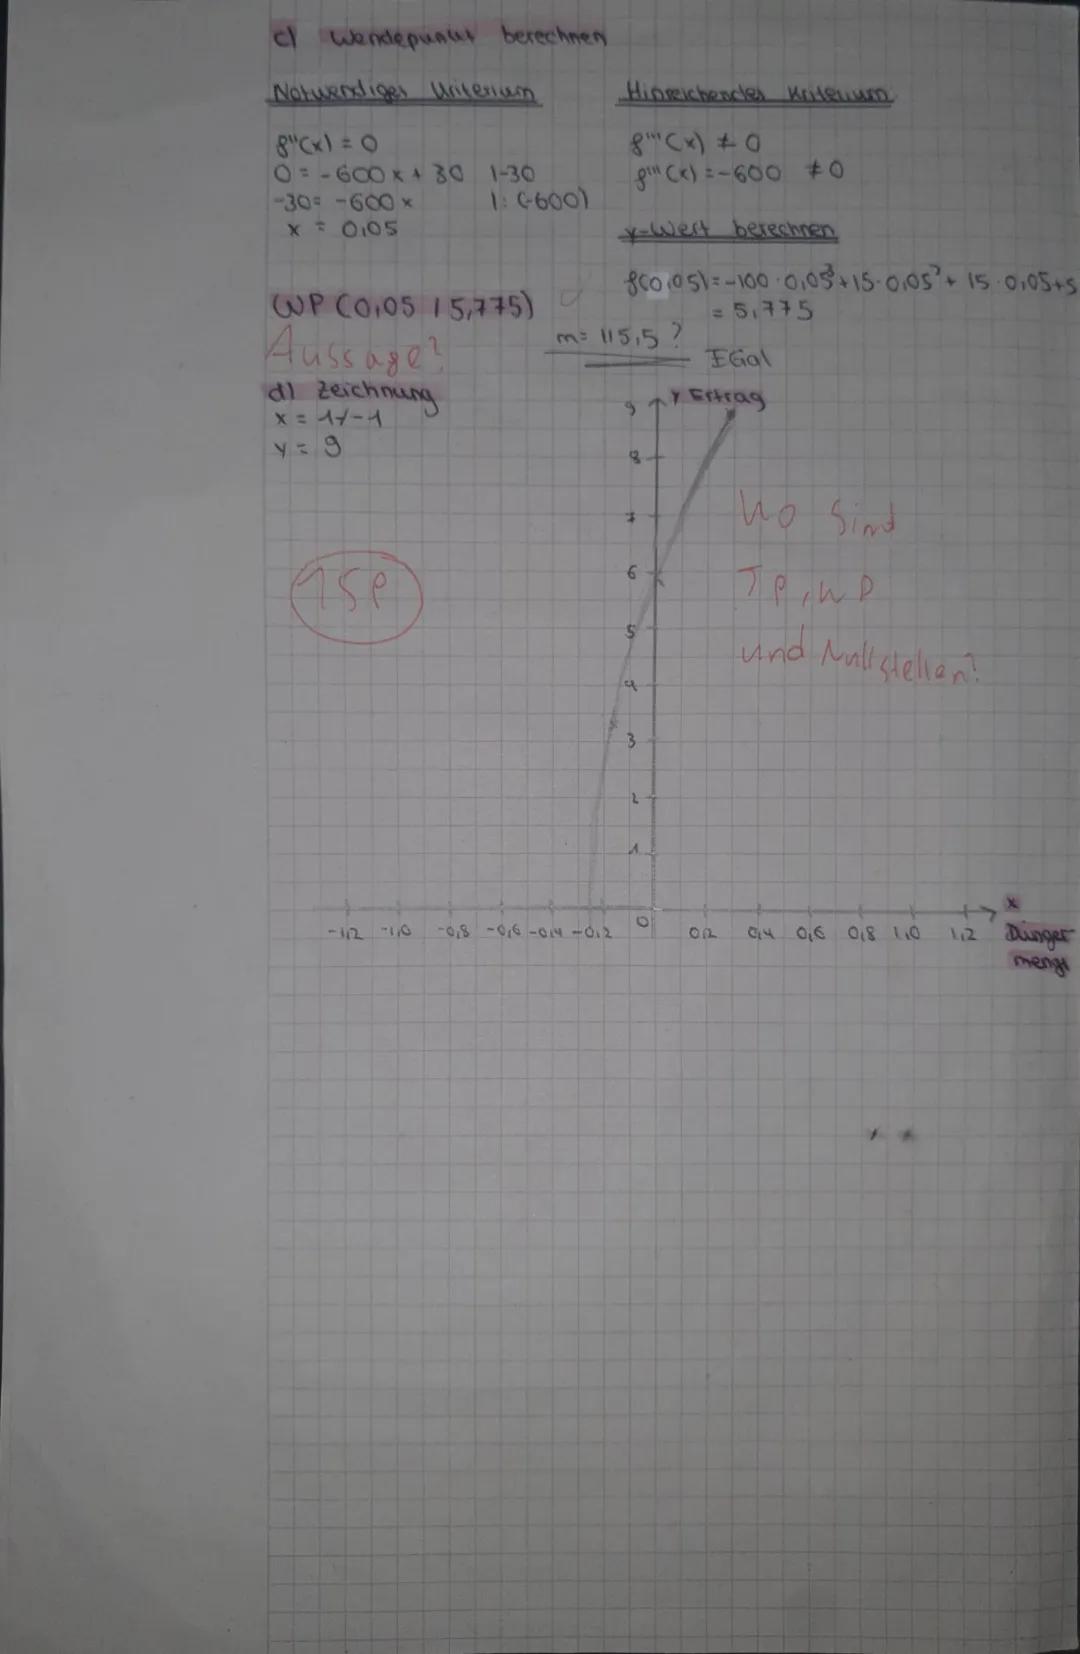 c) Wendepunkt berechnen
Notwendiges Kriterium
f''(x) = 0
0 = -600x + 30 |-30
-30 = -600x |: (-600)
x = 0,05
Hinreichendes Kriterium
f'''(x) ≠ 0
f'''(x) = -600 ≠ 0
y-Wert berechnen
f(0,05) = -100 · 0,05³ + 15 · 0,05² + 15 · 0,05 + 5
= 5,775
WP (0,05 | 5,775)
m = 115,5 ?
Egal
Aussage?
d) Zeichnung
x = 1/-1
y = 9
y Ertrag
9
8
7
6
5
4
3
2
1
Wo sind
TP, WP
und Nullstellen?
15P
-1,2 -1,0 -0,8 -0,6 -0,4 -0,2 0 0,2 0,4 0,6 0,8 1,0 1,2
x
Dünger
menge